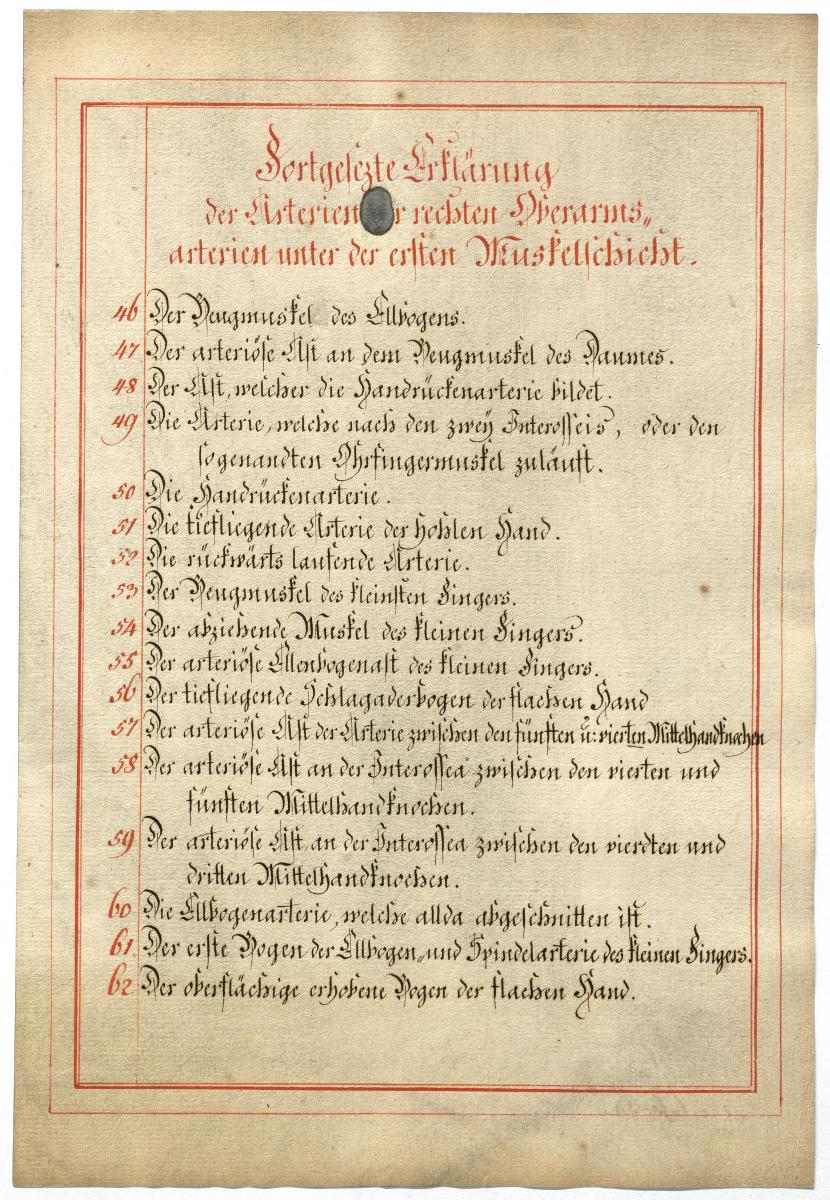 Fortgesezte Erklärung
der Arterien r rechten Oberarms„
arterien unter der ersten Muskelschicht.
46 Der Beugmuskel des Ellbogens.
47 Der arteriöse Ast an dem Beugmuskel des Daumes.
48 Der Ast, welcher die Handrückenarterie bildet.
49 Die Arterie, welche nach den zwey Interosseis, oder den
sogenandten Ohrfingermuskel zuläuft.
50 Die Handrückenarterie.
51 Die tiefliegende Arterie der hohlen Hand.
52 Die rückwärts laufende Arterie.
53 Der Beugmuskel des kleinsten Fingers.
54 Der abziehende Muskel des kleinen Fingers.
55 Der arteriöse Ellenbogenast des kleinen Fingers.
56 Der tiefliegende Schlagaderbogen der flachen Hand
57 Der arteriöse Ast der Arterie zwischen den fünften u: vierten Mittelhandknochen
58 Der arteriöse Ast an der Interossea zwischen den vierten und
fünften Mittelhandknochen.
59 Der arteriöse Ast an der Interossea zwischen den vierdten und
dritten Mittelhandknochen.
60 Die Ellbogenarterie, welche allda abgeschnitten ist.
61 Der erste Bogen der Ellbogen„ und Spindelarterie des kleinen Fingers.
62 Der oberflächige erhobene Bogen der flachen Hand.